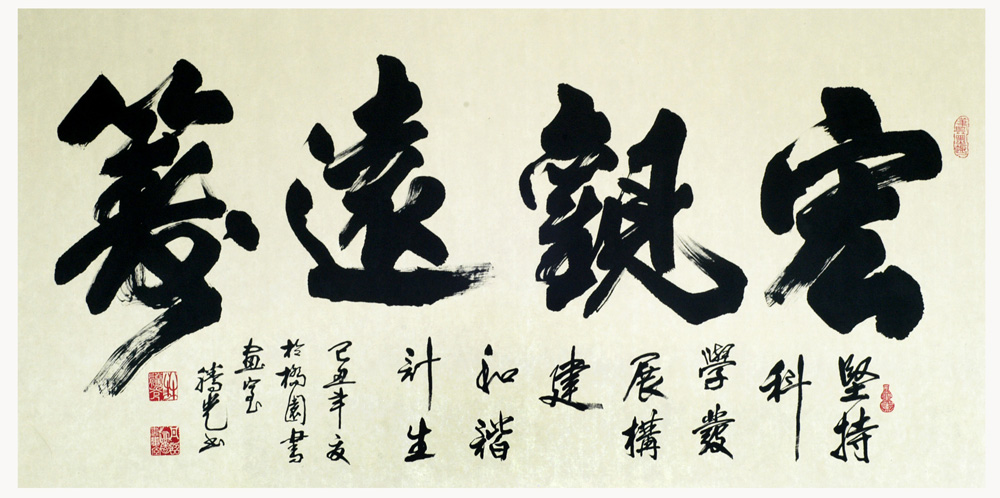 宏觀遠籌
堅持
科
學發
展構
建
和諧
計生
己丑年夏
於園書
畫室
光书